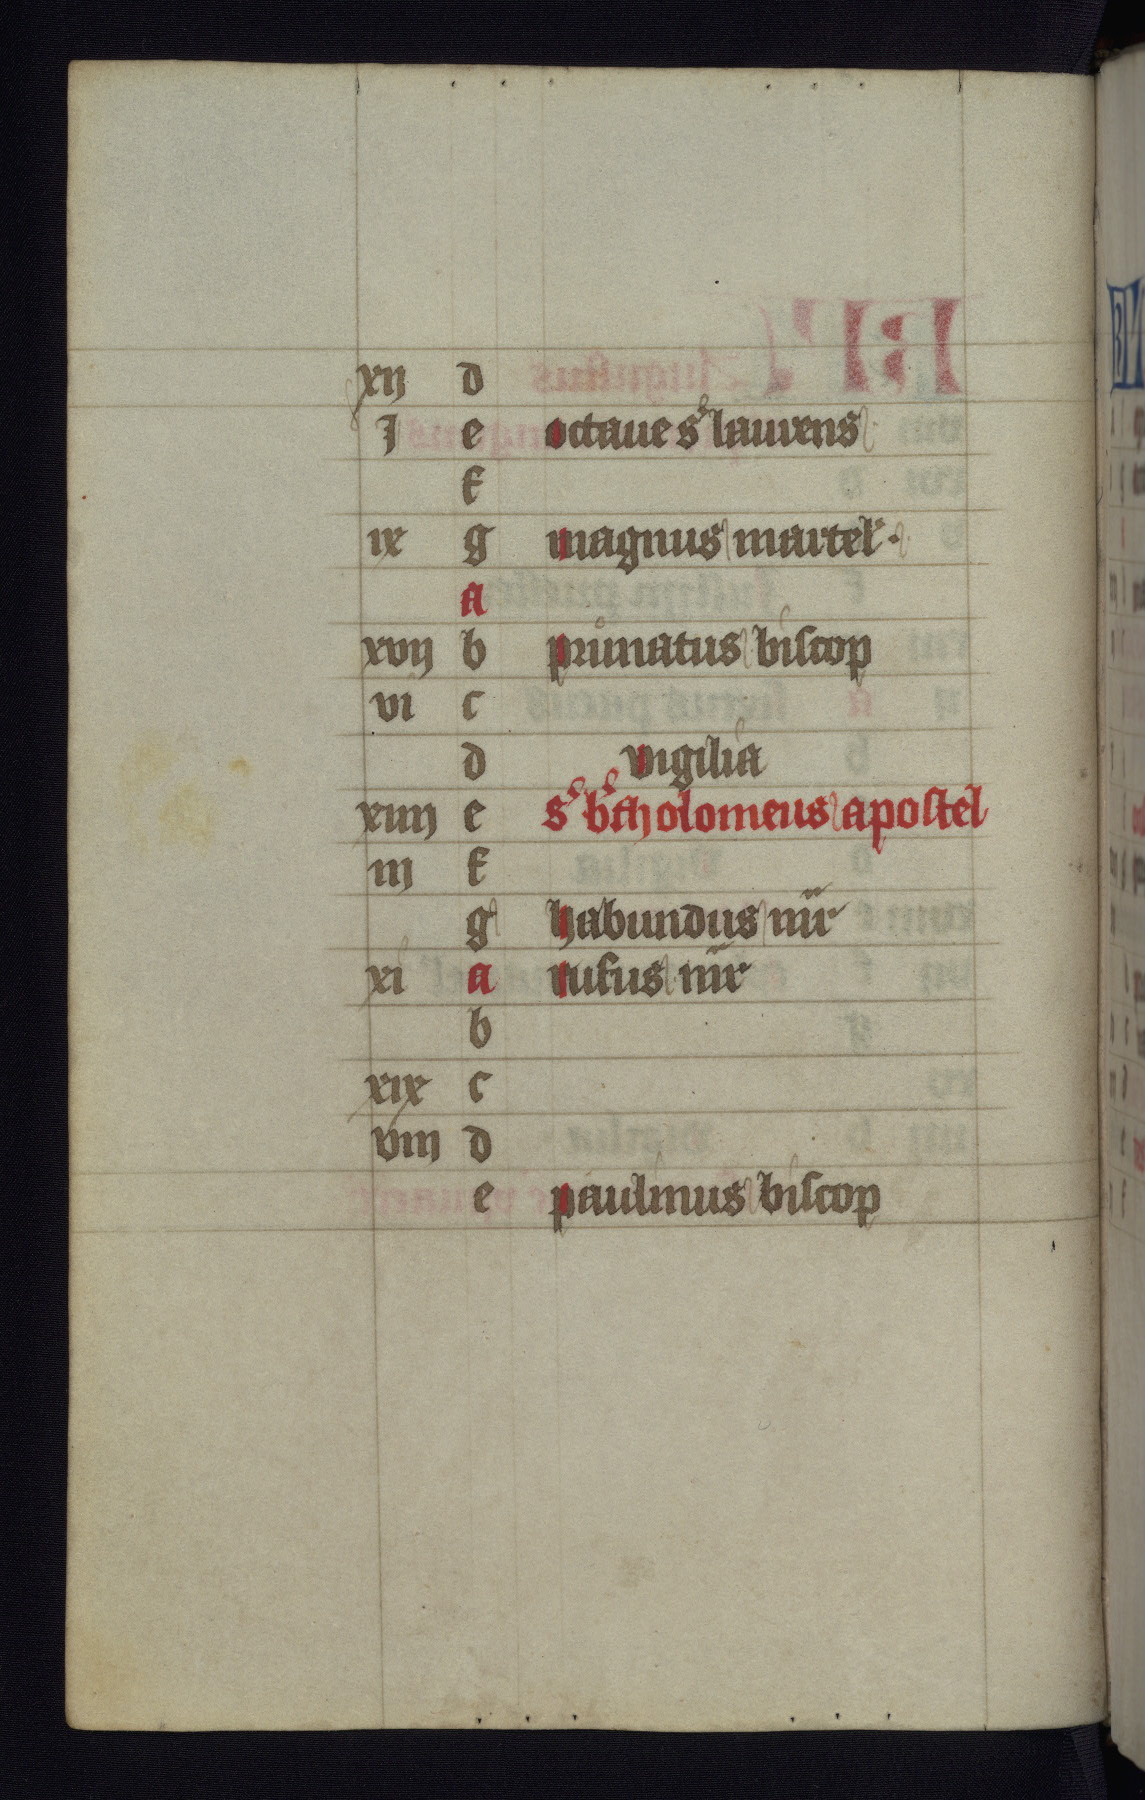 xij d
j e octaue sͤ laurens
f
ix g magnus martelͤ.
a
xvij b priuatus biscop
vi c
d vigilia
xiiij e sͤ bͤtholomeus apostel
iij f
g habundus mr̄
xi a rufus mr̄
b
xix c
viij d
e paulinus biscop